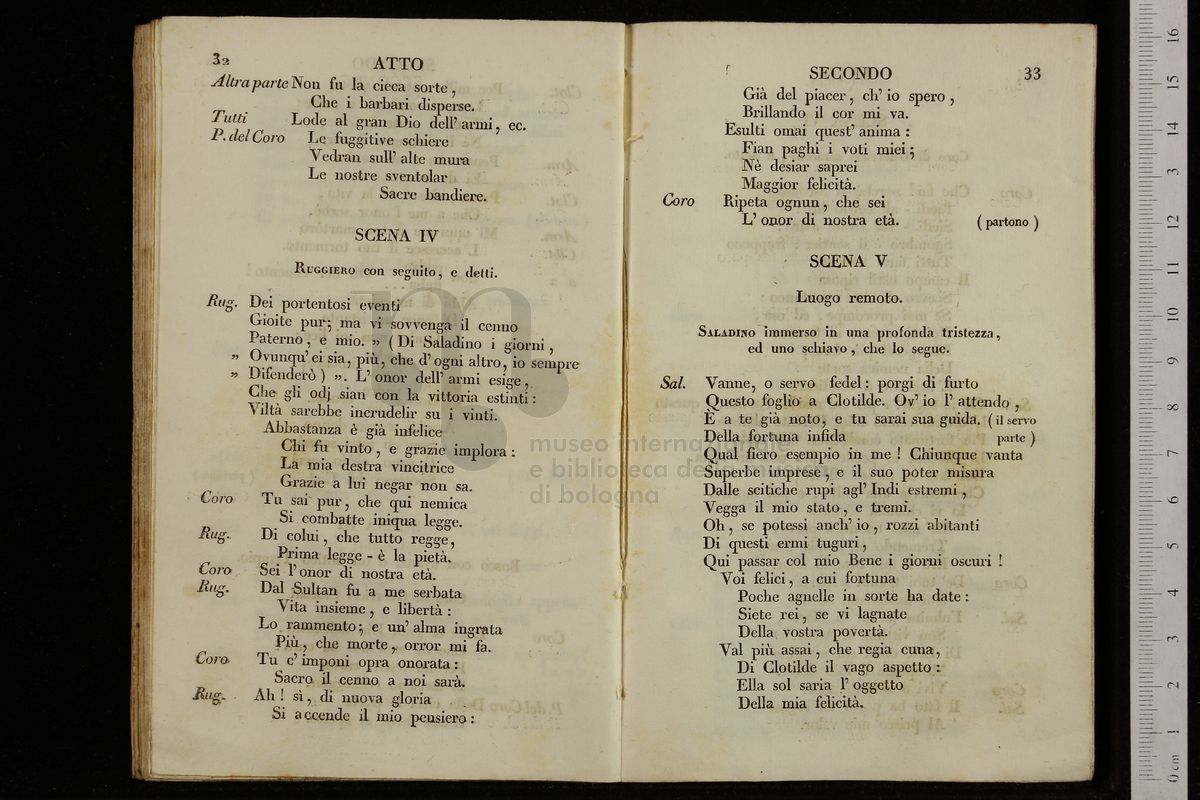 32
ATTO
Altra parte Non fu la cieca sorte ,
Che i barbari disperse.
Tutti Lode al gran Dio dell' armi, ec.
P. del Coro Le fuggitive schiere
Vedran sull' alte mura
Le nostre sventolar
Sacre bandiere.
SCENA IV
RUGGIERO con seguito, e detti.
Rug. Dei portentosi eventi
Gioite pur; ma vi sovvenga il cenno
Paterno, e mio. „ ( Di Saladino i giorni ,
„ Ovunqu' ei sia, più, che d' ogni altro, io sempre
„ Difenderò ) „. L' onor dell' armi esige,
Che gli odj sian con la vittoria estinti :
Viltà sarebbe incrudelir su i vinti.
Abbastanza è già infelice
Chi fu vinto , e grazie implora :
La mia destra vincitrice
Grazie a lui negar non sa.
Coro Tu sai pur, che qui nemica
Si combatte iniqua legge.
Rug. Di colui, che tutto regge,
Prima legge - è la pietà.
Coro Sei l' onor di nostra età.
Rug. Dal Sultan fu a me serbata
Vita insieme, e libertà :
Lo rammento; e un' alma ingrata
Più, che morte, orror mi fa.
Coro Tu c' imponi opra onorata :
Sacro il cenno a noi sarà.
Rug. Ah ! sì, di nuova gloria
Si accende il mio pensiero :
SECONDO
33
Già del piacer, ch' io spero ,
Brillando il cor mi va.
Esulti omai quest' anima :
Fian paghi i voti miei ;
Nè desiar saprei
Maggior felicità.
Coro Ripeta ognun, che sei
L' onor di nostra età. ( partono )
SCENA V
Luogo remoto.
SALADINO immerso in una profonda tristezza,
ed uno schiavo, che lo segue.
Sal. Vanne, o servo fedel : porgi di furto
Questo foglio a Clotilde. Ov' io l' attendo ,
È a te già noto, e tu sarai sua guida. ( il servo
Della fortuna infida parte )
Qual fiero esempio in me ! Chiunque vanta
Superbe imprese, e il suo poter misura
Dalle scitiche rupi agl' Indi estremi ,
Vegga il mio stato , e tremi.
Oh , se potessi anch' io , rozzi abitanti
Di questi ermi tuguri ,
Qui passar col mio Bene i giorni oscuri !
Voi felici, a cui fortuna
Poche agnelle in sorte ha date :
Siete rei, se vi lagnate
Della vostra povertà.
Val più assai, che regia cuna,
Di Clotilde il vago aspetto :
Ella sol saria l' oggetto
Della mia felicità.
museo internazionale
e biblioteca della musica
di bologna
0 cm 1 2 3 4 5 6 7 8 9 10 11 12 13 14 15 16